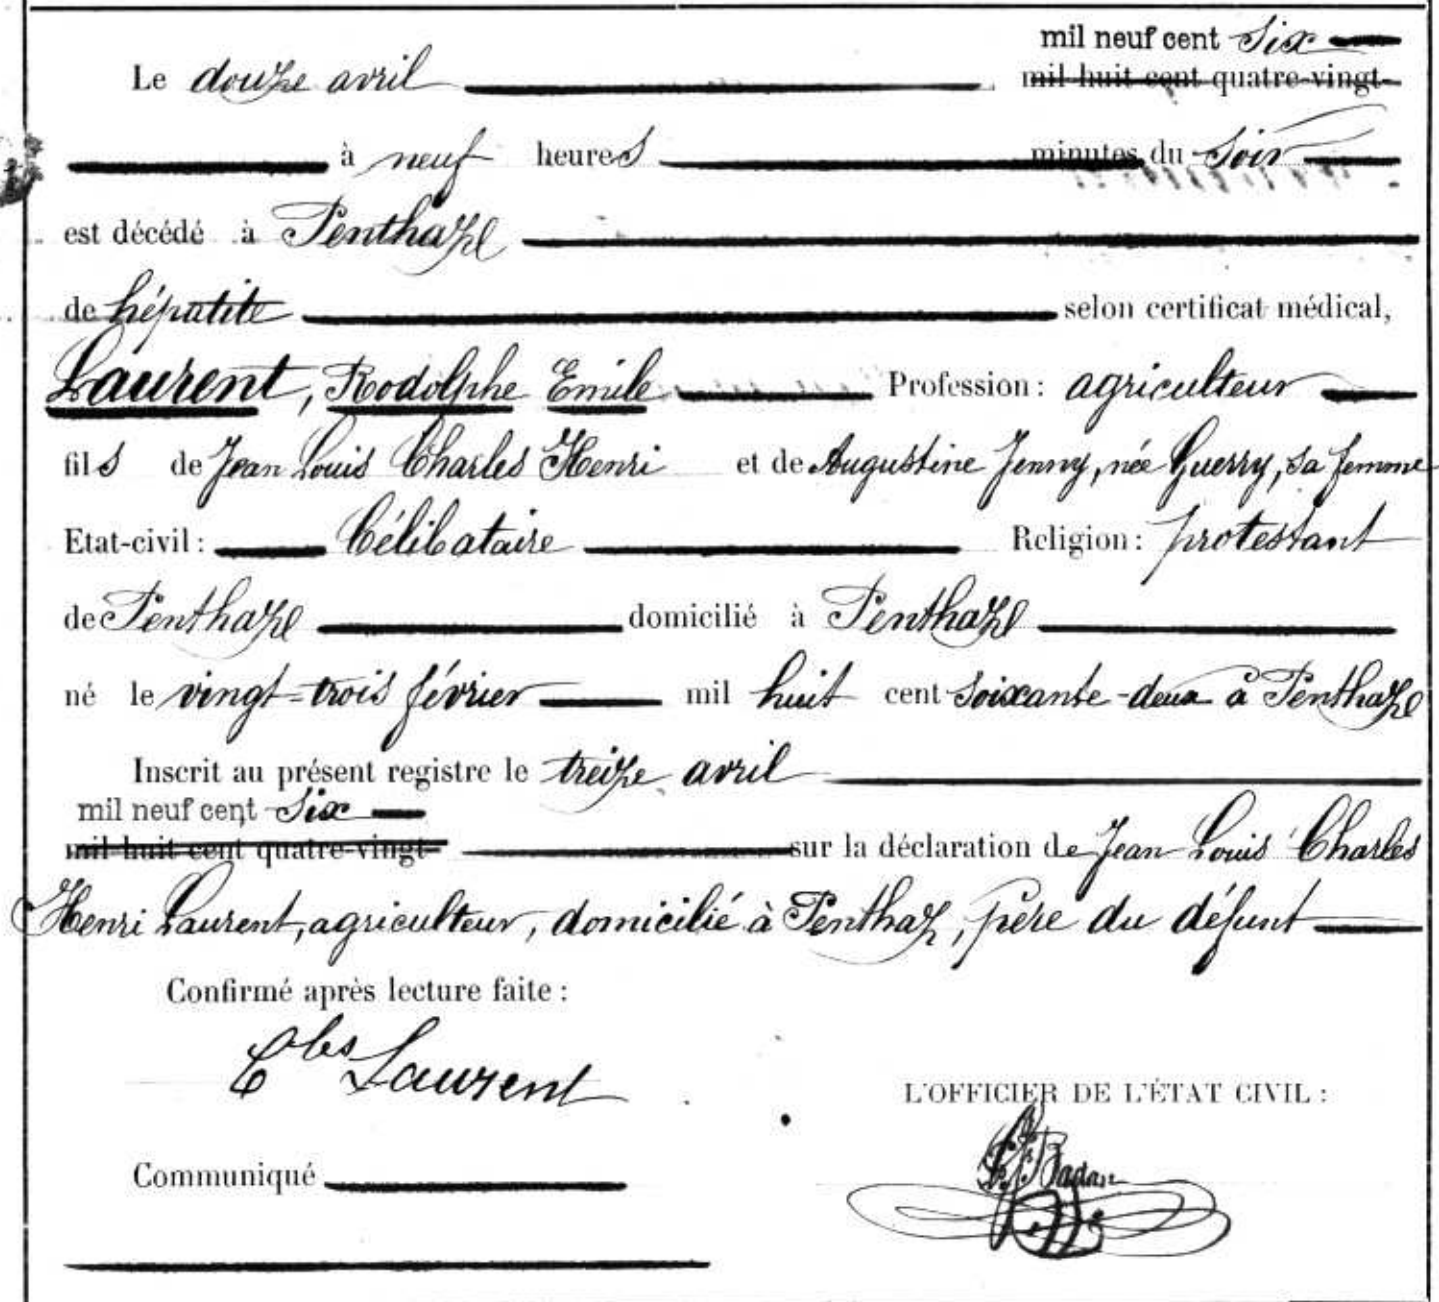 mil neuf cent six
Le douze avril mil huit cent quatre-vingt-
à neuf heures minutes du soir
est décédé à Penthaz
de hépatite selon certificat médical,
Laurent, Rodolphe Emile Profession: agriculteur
fils de Jean Louis Charles Henri et de Augustine Jenny, née Guerry, sa femme
Etat-civil: Célibataire Religion: protestant
de Penthaz domicilié à Penthaz
né le vingt-trois février mil huit cent soixante-deux à Penthaz
Inscrit au présent registre le treize avril
mil neuf cent six
mil huit cent quatre-vingt- sur la déclaration de Jean Louis Charles
Henri Laurent, agriculteur, domicilié à Penthaz, père du défunt
Confirmé après lecture faite:
Chs Laurent
L'OFFICIER DE L'ÉTAT CIVIL:
Badan
Communiqué